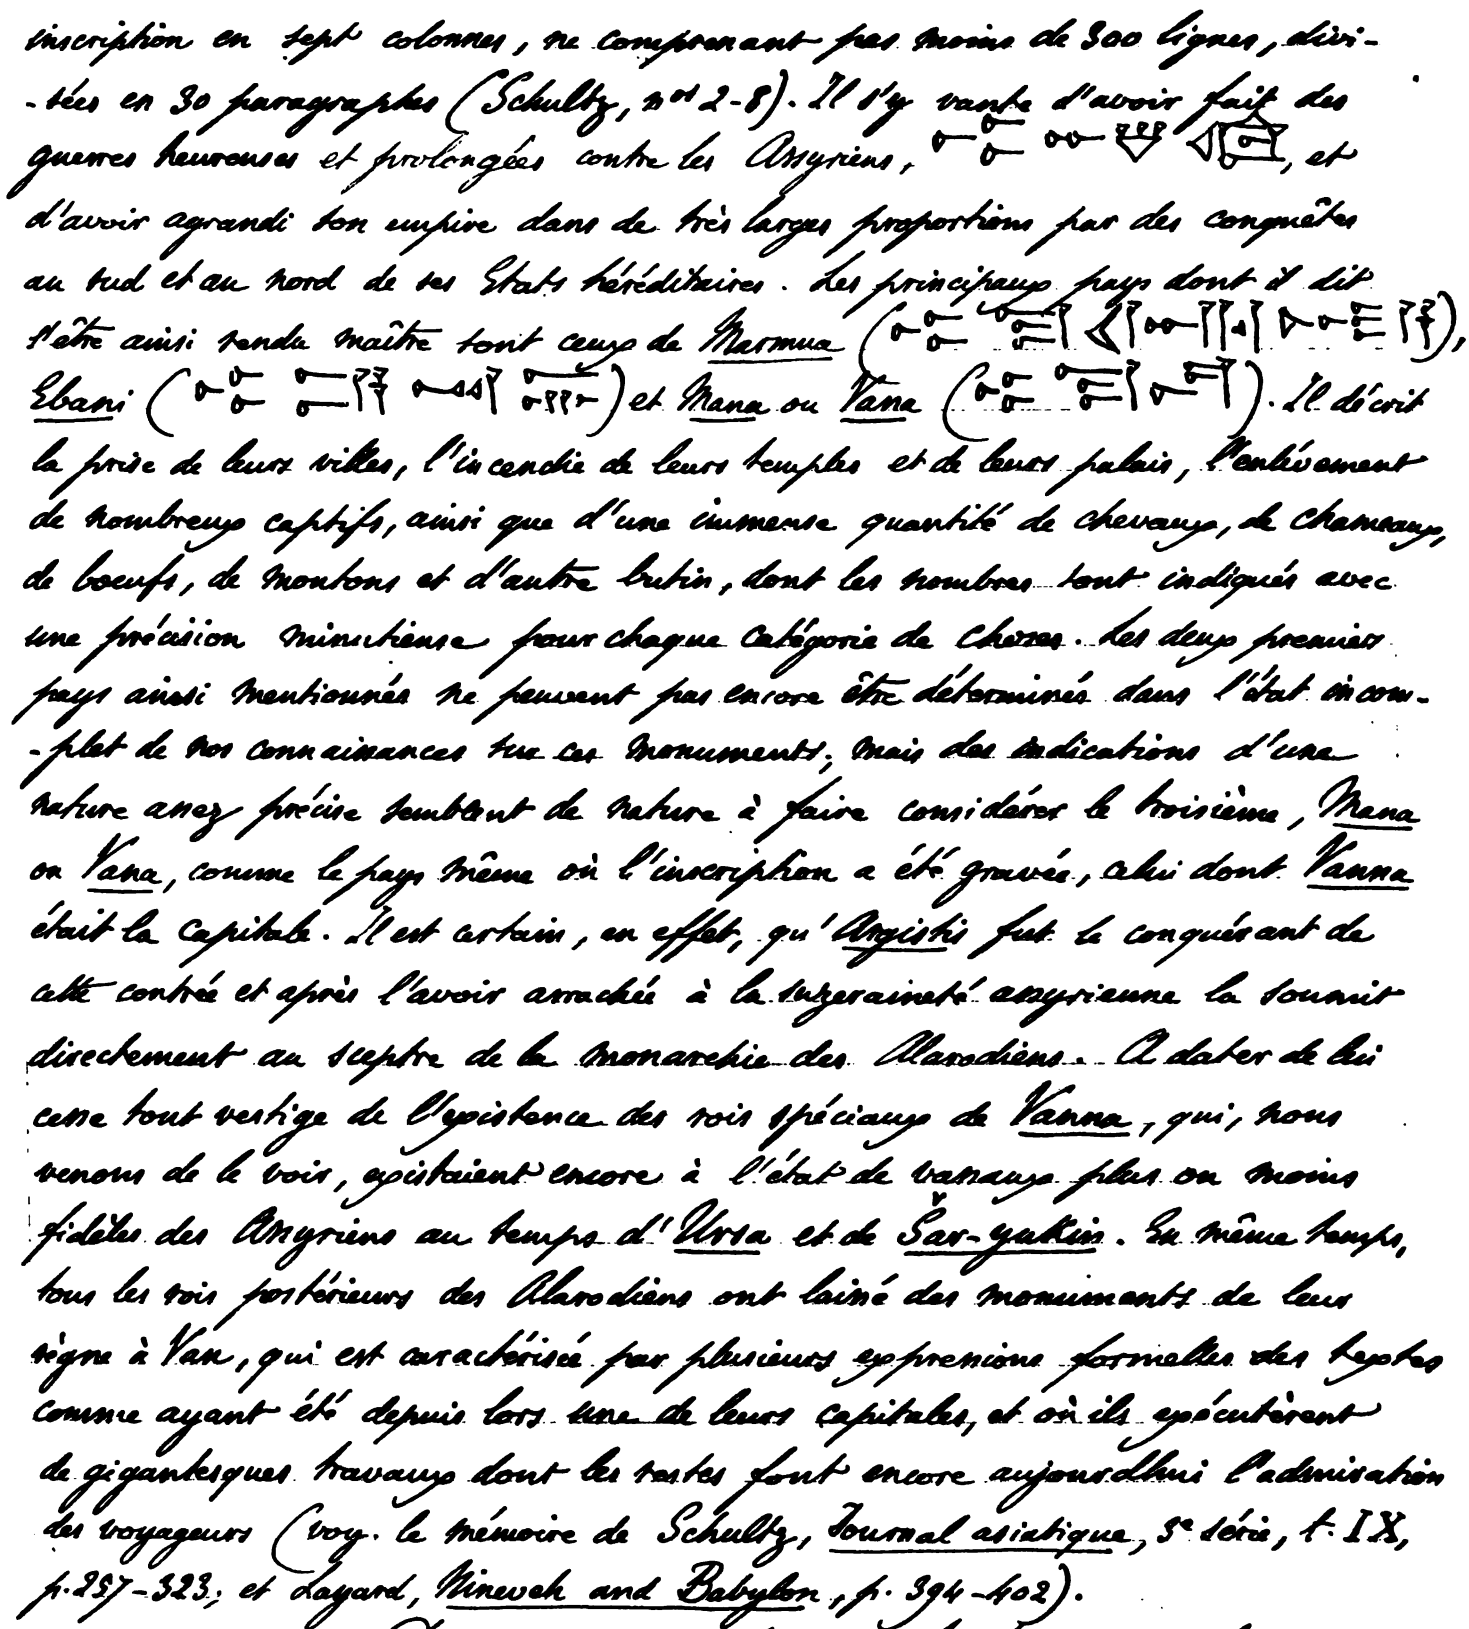 inscription en sept colonnes, ne comprenant pas moins de 300 lignes, divi-
-sées en 30 paragraphes (Schultz, nos 2-8). Il s'y vante d'avoir fait des
guerres heureuses et prolongées contre les Assyriens, , et
d'avoir agrandi son empire dans de très larges proportions par des conquêtes
au sud et au nord de ses Etats héréditaires. Les principaux pays dont il dit
s'être ainsi rendu maître sont ceux de Marmua ( ),
Ebani ( ) et Mana ou Vana ( ). Il décrit
la prise de leurs villes, l'incendie de leurs temples et de leurs palais, l'enlèvement
de nombreux captifs, ainsi que d'une immense quantité de chevaux, de chameaux,
de bœufs, de moutons et d'autre butin, dont les nombres sont indiqués avec
une précision minutieuse pour chaque catégorie de choses. Les deux premiers
pays ainsi mentionnés ne peuvent pas encore être déterminés dans l'état incom-
-plet de nos connaissances sur ces monuments; mais des indications d'une
nature assez précise semblent de nature à faire considérer le troisième, Mana
ou Vana, comme le pays même où l'inscription a été gravée, celui dont Vanna
était la capitale. Il est certain, en effet, qu'Argistis fut le conquérant de
cette contrée et après l'avoir arrachée à la suzeraineté assyrienne la soumit
directement au sceptre de la monarchie des Alarodiens. A dater de lui
cesse tout vestige de l'existence des rois spéciaux de Vanna, qui, nous
venons de le voir, existaient encore à l'état de vassaux plus ou moins
fidèles des Assyriens au temps d'Ursa et de Šar-yukin. En même temps,
tous les rois postérieurs des Alarodiens ont laissé des monuments de leur
règne à Van, qui est caractérisée par plusieurs expressions formelles des textes
comme ayant été depuis lors une de leurs capitales, et où ils exécutèrent
de gigantesques travaux dont les restes font encore aujourdhui l'admiration
des voyageurs (voy. le mémoire de Schultz, Journal asiatique, 3e série, t. IX,
p. 257-323; et Layard, Nineveh and Babylon, p. 394-402).